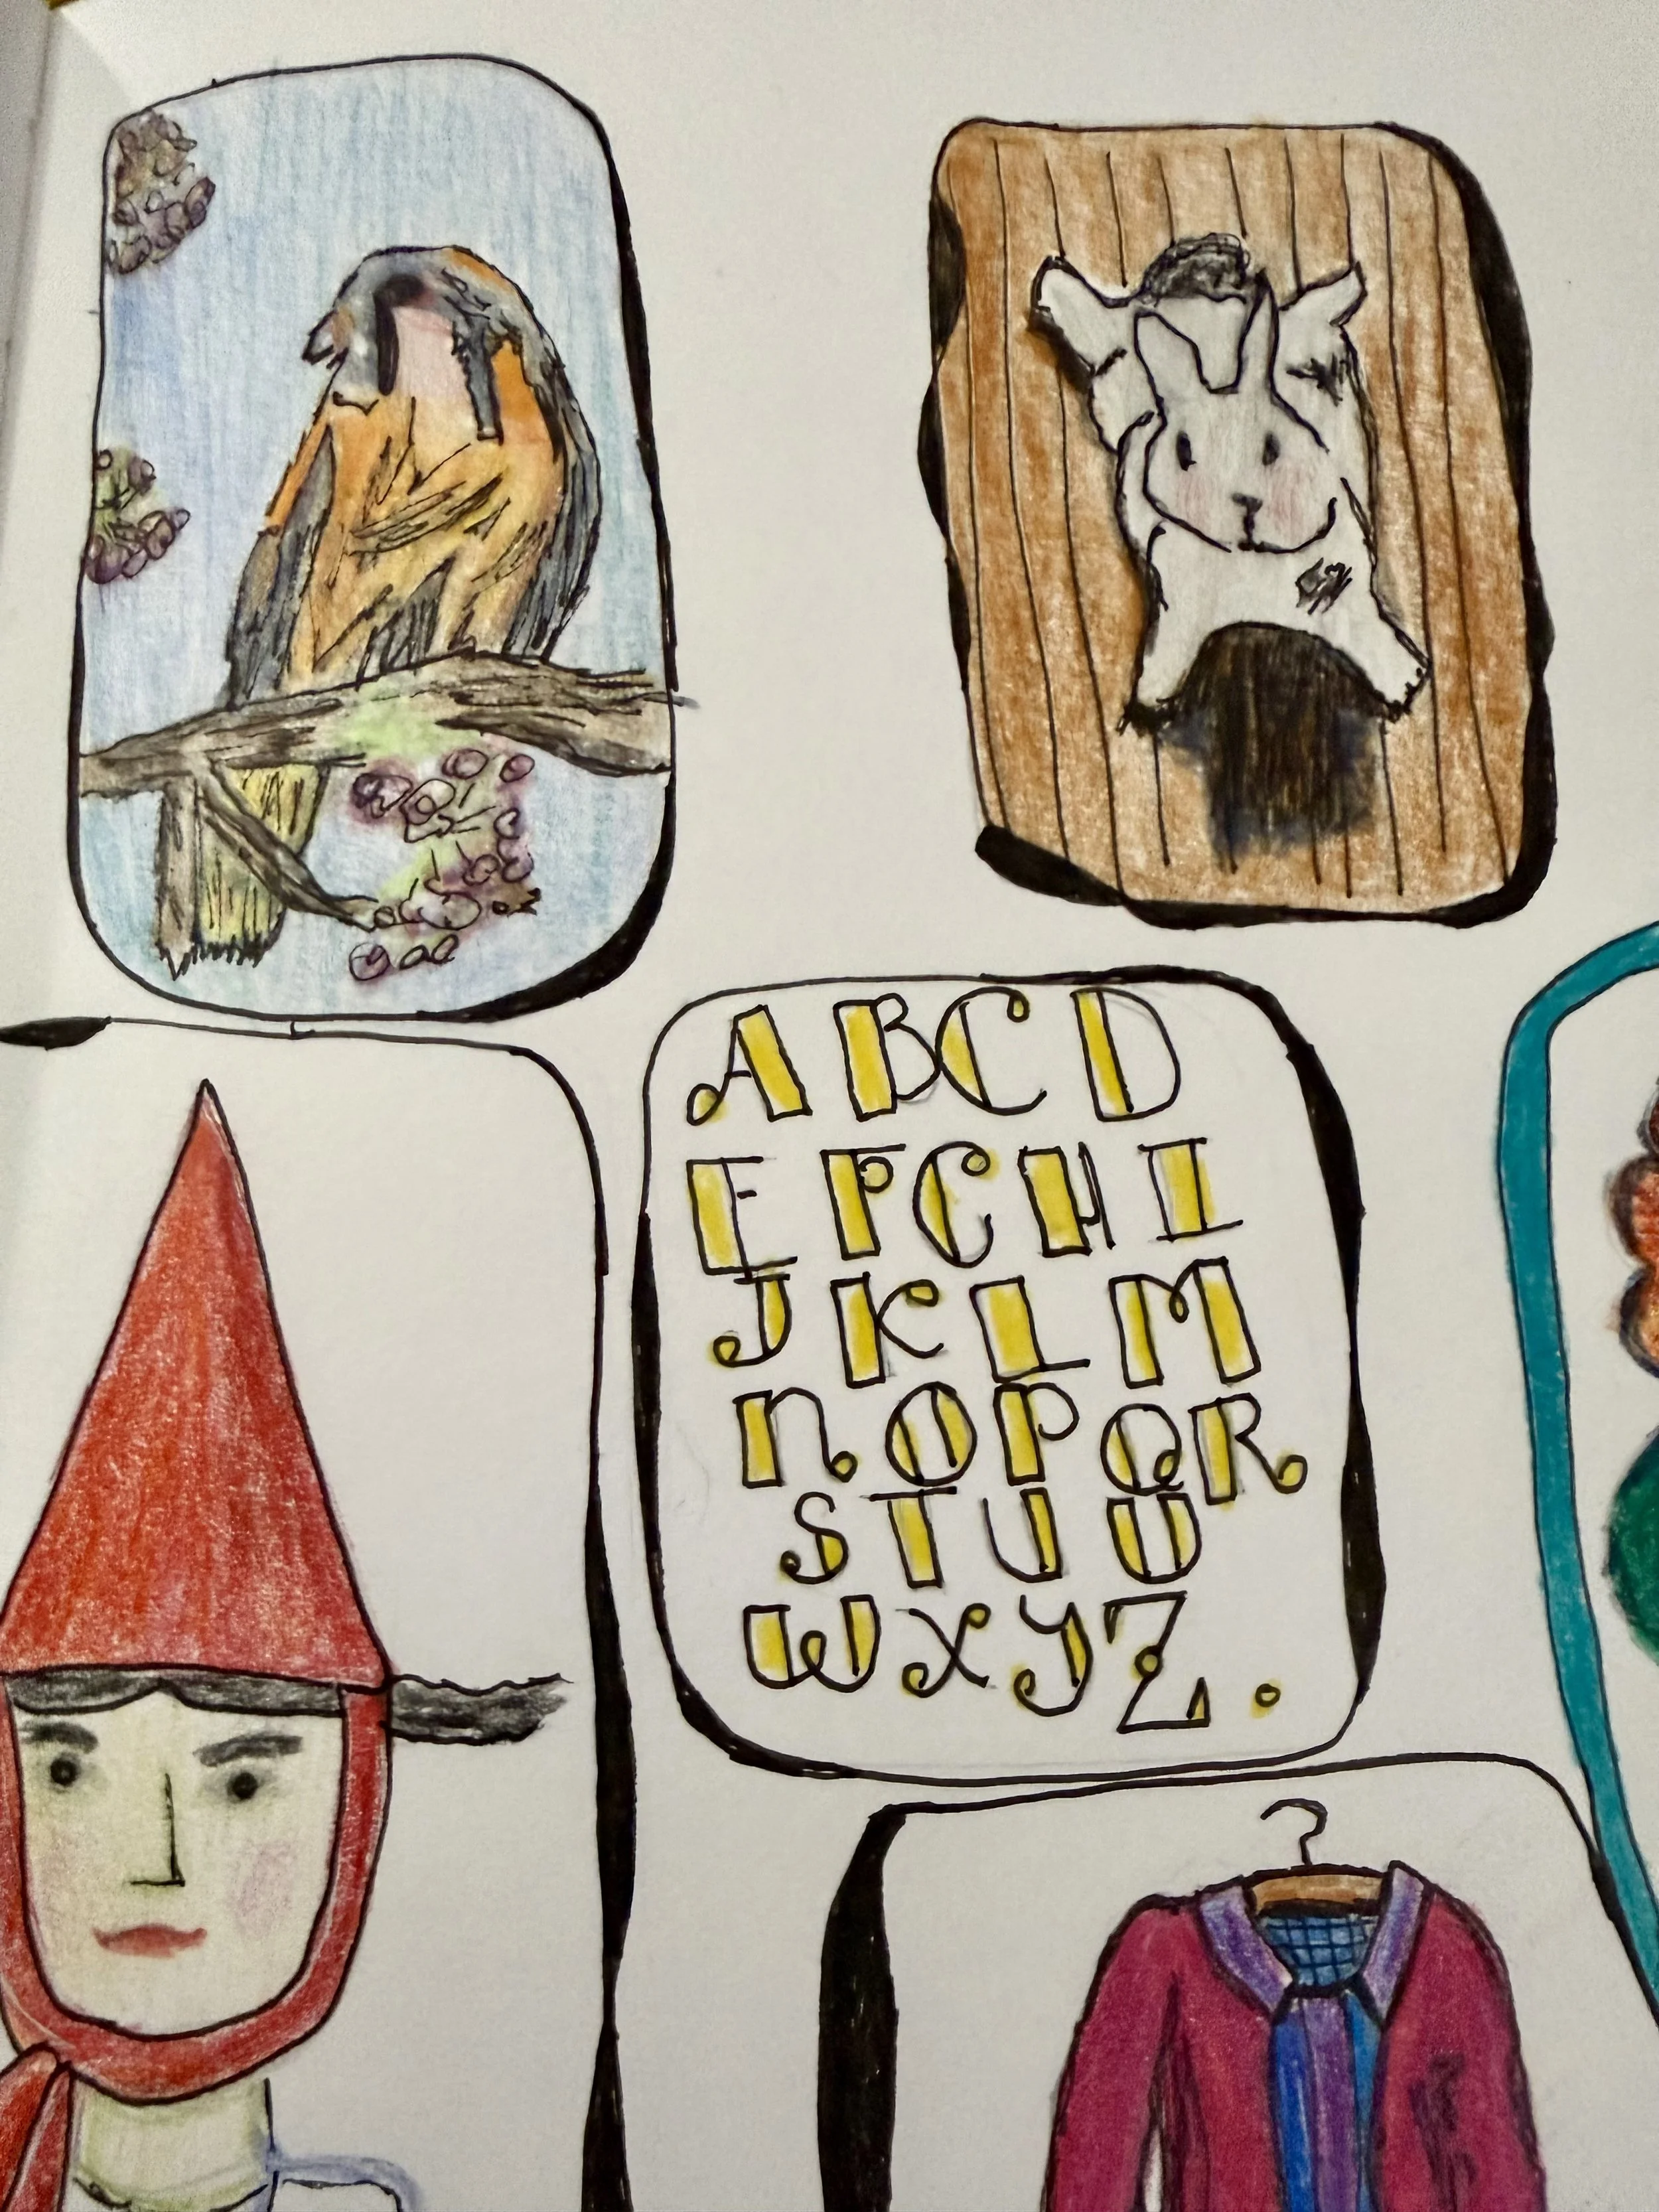 A B C D
E F C H I
J K L M
n O P Q R
S T U U
W X Y Z .